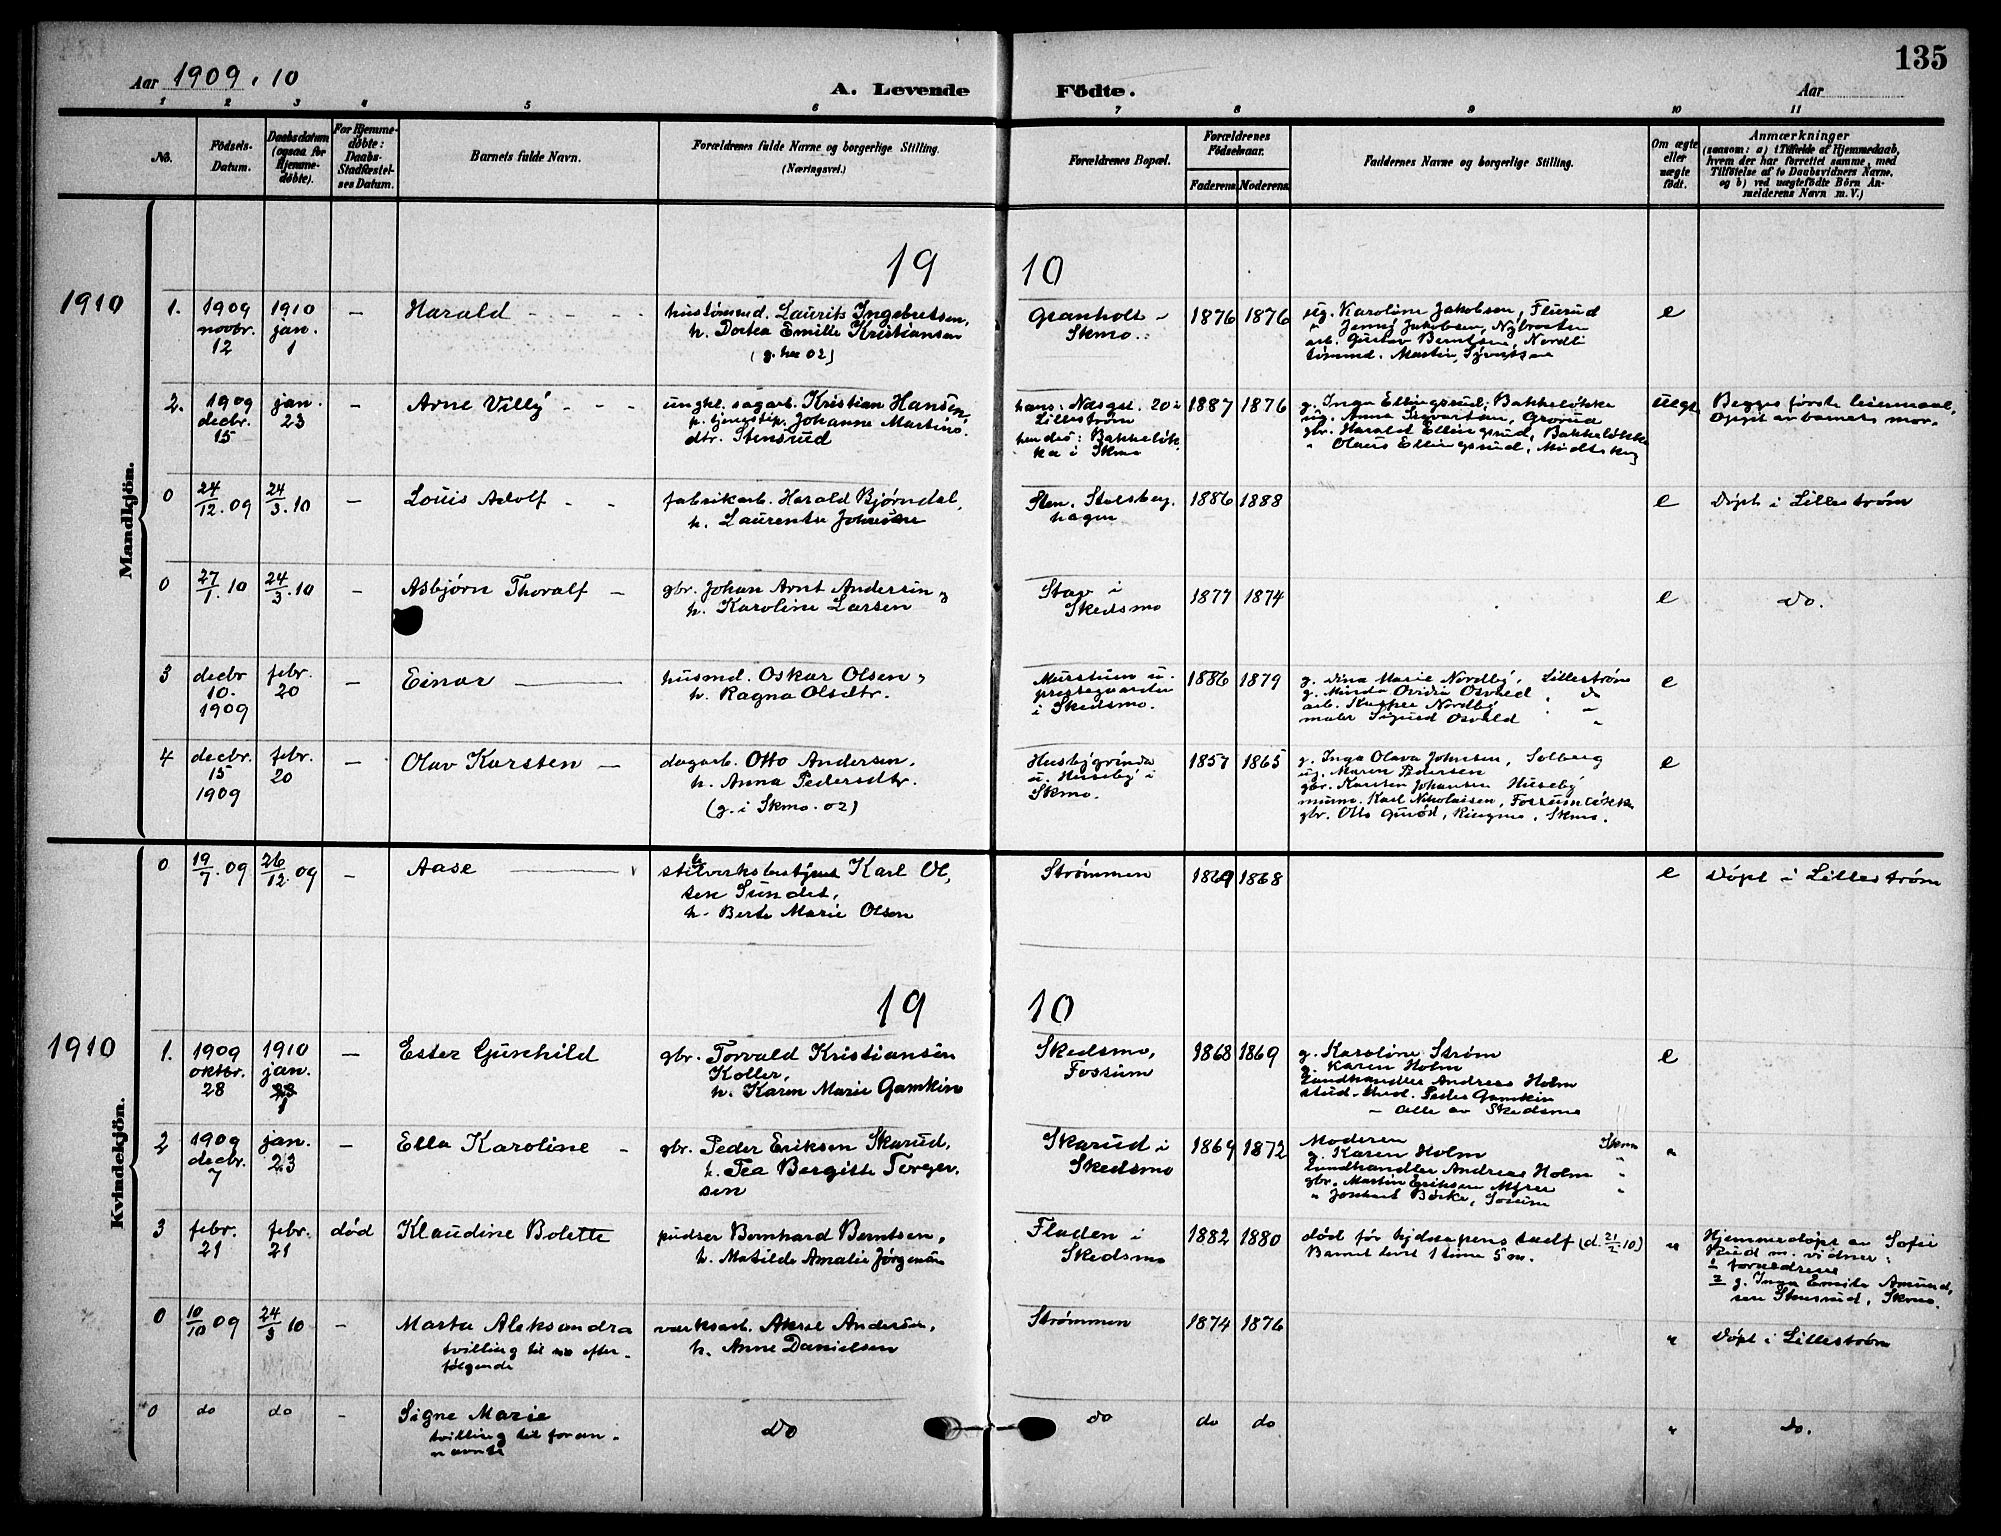 135
Aar 1909.10
A. Levende Födte.
Aar
1 2 3 4 5 6 7 8 9 10 11
No.
Födsels-Datum.
Daabsdatum (ogsaa for Hjemme-døbte).
For Hjemme-døbte: Daabs-Stadfæstel-ses Datum.
Barnets fulde Navn.
Forældrenes fulde Navne og borgerlige Stilling. (Næringsvei.)
Forældrenes Bopæl.
Forældrenes Födselsaar.
Faderens Moderens
Faddernes Navne og borgerlige Stilling.
Om ægte eller uægte født.
Anmærkninger
(saasom: a) i Tilfælde af Hjemmedaab, hvem der har forrettet samme, med Tilföielse af to Daabsvidners Navne, og b) ved uægtefödte Börn Anmelderens Navn m. V.)
Mandkjön.
19 10
1910
1. 1909 novbr. 12
1910 jan. 1
– Harald
hustømmd. Laurits Ingebretsen,
h. Dortea Emilie Kristiansen
(g. her 02)
Granholt – Skmo.
1876 1876
ug. Karoline Jakobsen, Flurud
" Jenny Jakobsen, Nybrotten
arb. Gustav Berntsen, Nordli
tømmd. Martin Syvertsen
e
2. 1909 decbr. 15
jan. 23
– Arne Villy
ungkl. sagarb. Kristian Hansen
p. tjenestep. Johanne Martins-
dtr. Stensrud
hans: Næsgt. 20 i
Lillestrøm
hendes: Bakkeløk-
ka i Skmo
1887 1876
g. Inga Ellingsrud, Bakkeløkka
ug. Anna Sigvartsen, Grorud
gbr. Harald Ellingsrud, Bakkeløkka
" Olaus Ellingsrud, Midtskog
uegt
Begges første leiermaal,
Opgit av barnets mor.
0 24/12.09 24/3.10
– Louis Adolf
fabrikarb. Harald Bjørndal,
h. Laurentse Johnsene
Sten. Stalsberg
hagen
1886 1888
e
Døpt i Lillestrøm
0 27/1.10 24/3.10
– Asbjørn Thoralf
gbr. Johan Arnt Andersen,
h. Karoline Larsen
Stav i
Skedsmo
1877 1874
e
do.
3 decbr 10. 1909
febr. 20
– Einar
husmd. Oskar Olsen,
h. Ragna Olsdtr.
Murstuen u.
prestegaarden
i Skedsmo.
1886 1879
g. Dina Marie Nordby, Lillestrøm
g. Minda Ovidia Osvald do
arb. Kasper Nordby "
maler Sigurd Osvald "
e
4 decbr. 15 1909
febr. 20
– Olav Karsten
dagarb. Otto Andersen,
h. Anna Pedersdtr.
(g. i Skmo. 02)
Husebygrinda
u. Huseby i
Skmo.
1857 1865
g. Inga Olava Johnsen, Solberg
ug. Maren Pedersen
gbr. Karsten Johansen Huseby
murm. Karl Nikolaisen, Fossumløkk
gbr. Otto, Ringmo, Skmo.
e
Kvindekjön.
0 19/7.09 26/12.09
– Aase
stålverksbestyrer Karl Ol,
sen Sundet,
h. Berte Marie Olsen
Strømmen
1869 1868
e
Døpt i Lillestrøm
19 10
1910
1. 1909 oktbr. 28
1910 jan. 1
– Ester Gunhild
gbr. Torvald Kristiansen
Koller,
h. Karen Marie Gamkin
Skedsmo,
Fossum
1868 1869
g. Karoline Strøm
g. Karen Holm
Landhandler Andreas Holm
stud. theol. Peder Gamkin
– alle av Skedsmo
e
2 1909 decbr. 7
jan. 23
– Ella Karoline
gbr. Peder Eriksen Skarud,
h. Tea Bergitte Torger,
sen
Skarud i
Skedsmo
1869 1872
Moderen Skmo
g. Karen Holm "
Landhandler Andreas Holm "
gbr. Martin Eriksen Myrer "
" Børke, Sørum
"
3 febr. 21
febr. 21
død
Klaudine Bolette
pudser Bernhard Berntsen,
h. Matilde Amalie Jørgensen
Fladen i
Skedsmo
1882 1880
død før hjdåpens stadf (d. 21/2 10)
Barnet levet 1 time 5 m.
"
Hjemmedøpt av Sofie
Rud m. vidner:
1 forældrene
2 g. Inga Emilie Amund,
sen Stensrud, Skmo.
0 10/10 09 24/3 10
– Marta Aleksandra
tvilling til efter-
følgende
verksarb. Aksel Andersen,
h. Anne Danielsen
Strømmen
1874 1876
"
Døpt i Lillestrøm
0 do do
– Signe Marie
tvilling til foran-
nævnte
do
do
do do
"
do.